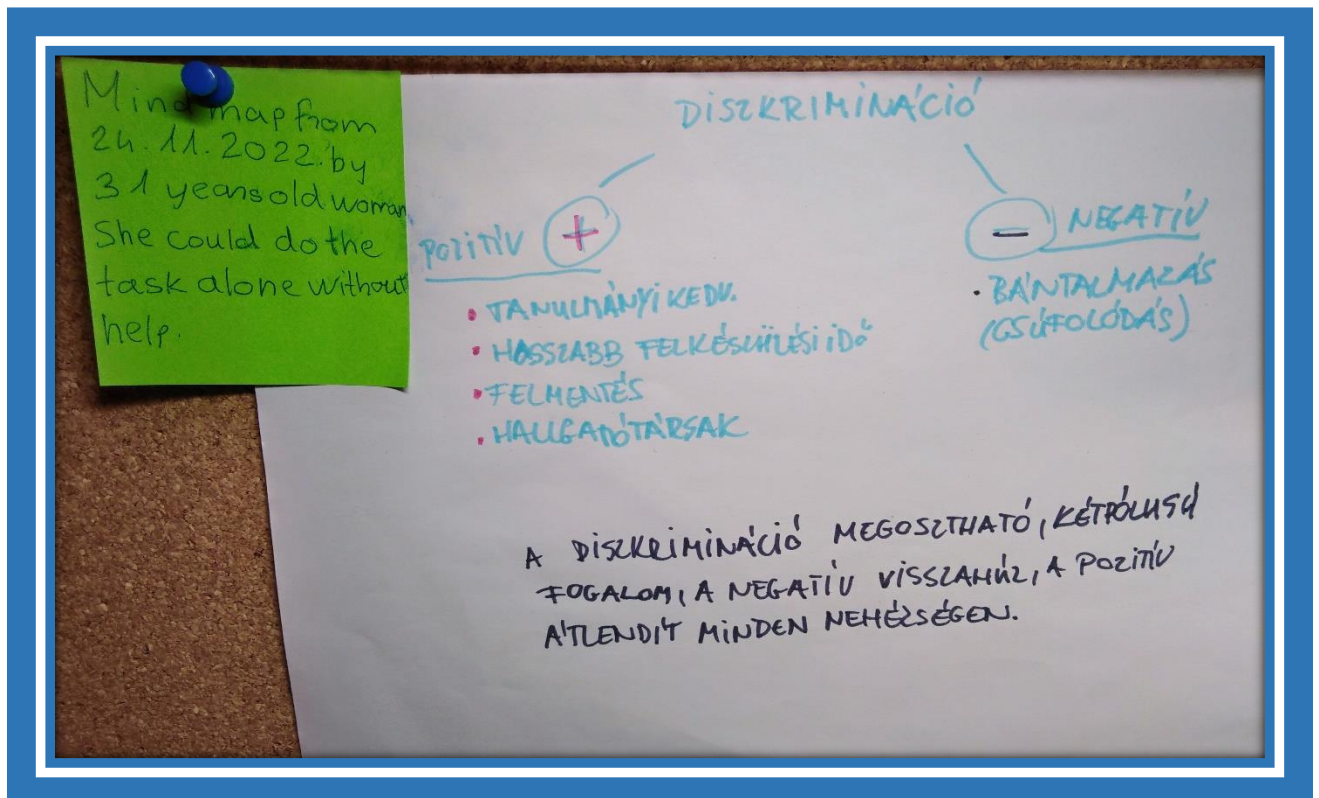 Mind map from
24.11.2022. by
31 years old woman
She could do the
task alone without
help.
DISZKRIMINÁCIÓ
POZITÍV +
• TANULMÁNYI KEDV.
• HOSSZABB FELKÉSZÜLÉSI IDŐ
• FELMENTÉS
• HALLGATÓTÁRSAK
− NEGATÍV
• BÁNTALMAZÁS
(CSÚFOLÓDÁS)
A DISZKRIMINÁCIÓ MEGOSZTHATÓ, KÉTPÓLUSÚ
FOGALOM, A NEGATÍV VISSZAHÚZ, A POZITÍV
ÁTLENDÍT MINDEN NEHÉZSÉGEN.